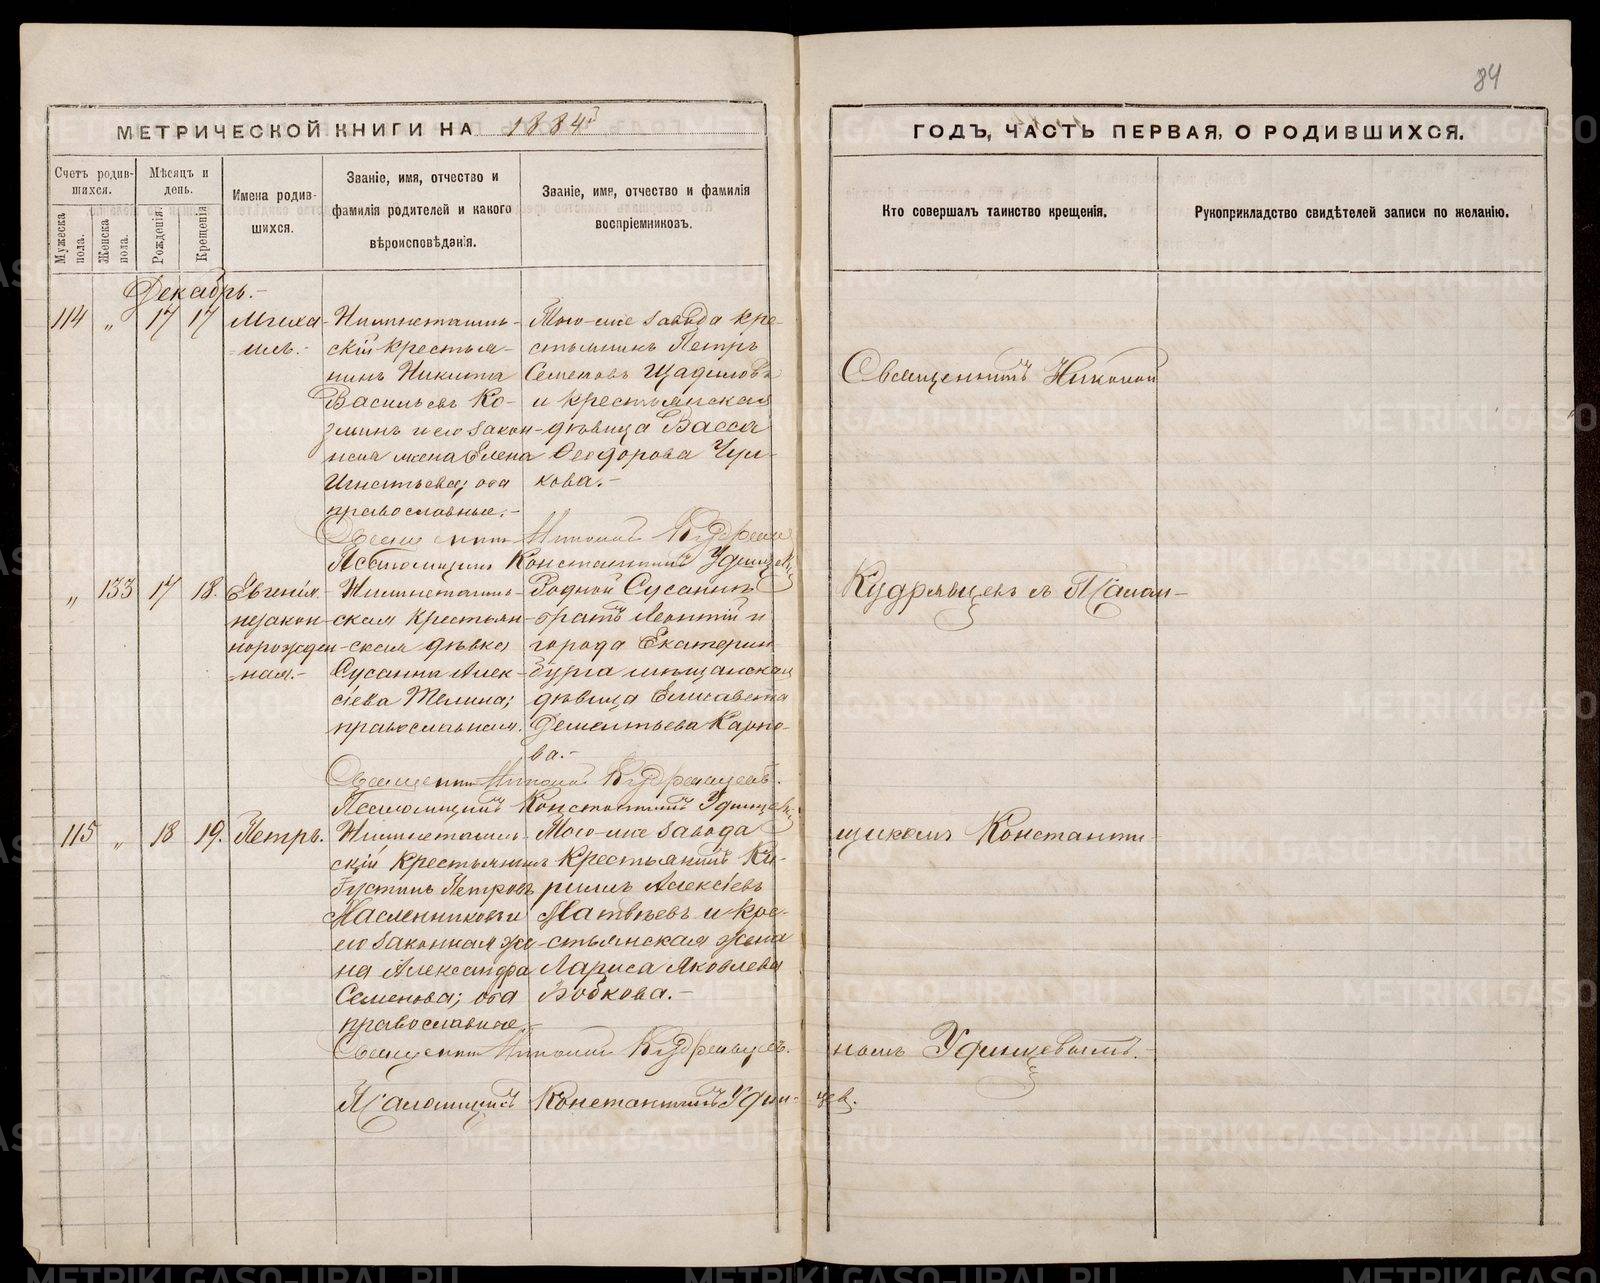 84
МЕТРИЧЕСКОЙ КНИГИ НА 1884й
ГОДЪ, ЧАСТЬ ПЕРВАЯ, О РОДИВШИХСЯ.
Счетъ родив-
шихся.
Мужеска пола.
Женска пола.
Мѣсяцъ и
день.
Рожденія.
Крещенія
Имена родив-
шихся.
Званіе, имя, отчество и
фамилія родителей и какого
вѣроисповѣданія.
Званіе, имя, отчество и фамилія
воспріемниковъ.
Кто совершалъ таинство крещенія.
Рукоприкладство свидѣтелей записи по желанію.
Декабрь.-
114 " 17 17 Миха-
илъ.-
Нижнетагиль-
скій крестья-
нинъ Никита
Васильевъ Ко-
зминъ и его закон-
ная жена Елена
Игнатьева; оба
православные.-
Того-же завода кре-
стьянинъ Петръ
Семеновъ Щадиловъ
и крестьянская
дѣвица Васса
Ѳеодорова Чул-
кова.-
Священникъ Николай Кудрявц
Псаломщикъ Константинъ Удинцев
" 133 17 18. Евгенія
незакон-
норожден-
ная.-
Нижнетагиль-
ская крестьян-
ская дѣвка
Сусанна Алек-
сіева Телина;
православная.
Родной Сусанны
братъ Леонтій и
города Екатерин
бурга мѣщанская
дѣвица Елисавета
Дементьева Карпо-
ва.-
Священникъ Николай Кудрявцевъ.
Псаломщикъ Константинъ Удинцев
115 " 18 19. Петръ.
Нижнетагиль-
скій крестьянинъ
Густинъ Петровъ
Масленниковъ и
его законная же-
на Александра
Семенова; оба
православные.-
Того-же завода
крестьянинъ Ки-
риллъ Алексіевъ
Матвѣевъ и кре-
стьянская жена
Лариса Яковлева
Бобкова.-
Священникъ Николай Кудрявцевъ.
Псаломщикъ Константинъ Удин-цев.
Священникъ Николай
Кудрявцевъ съ Псалом-
щикомъ Константи-
номъ Удинцевымъ.-